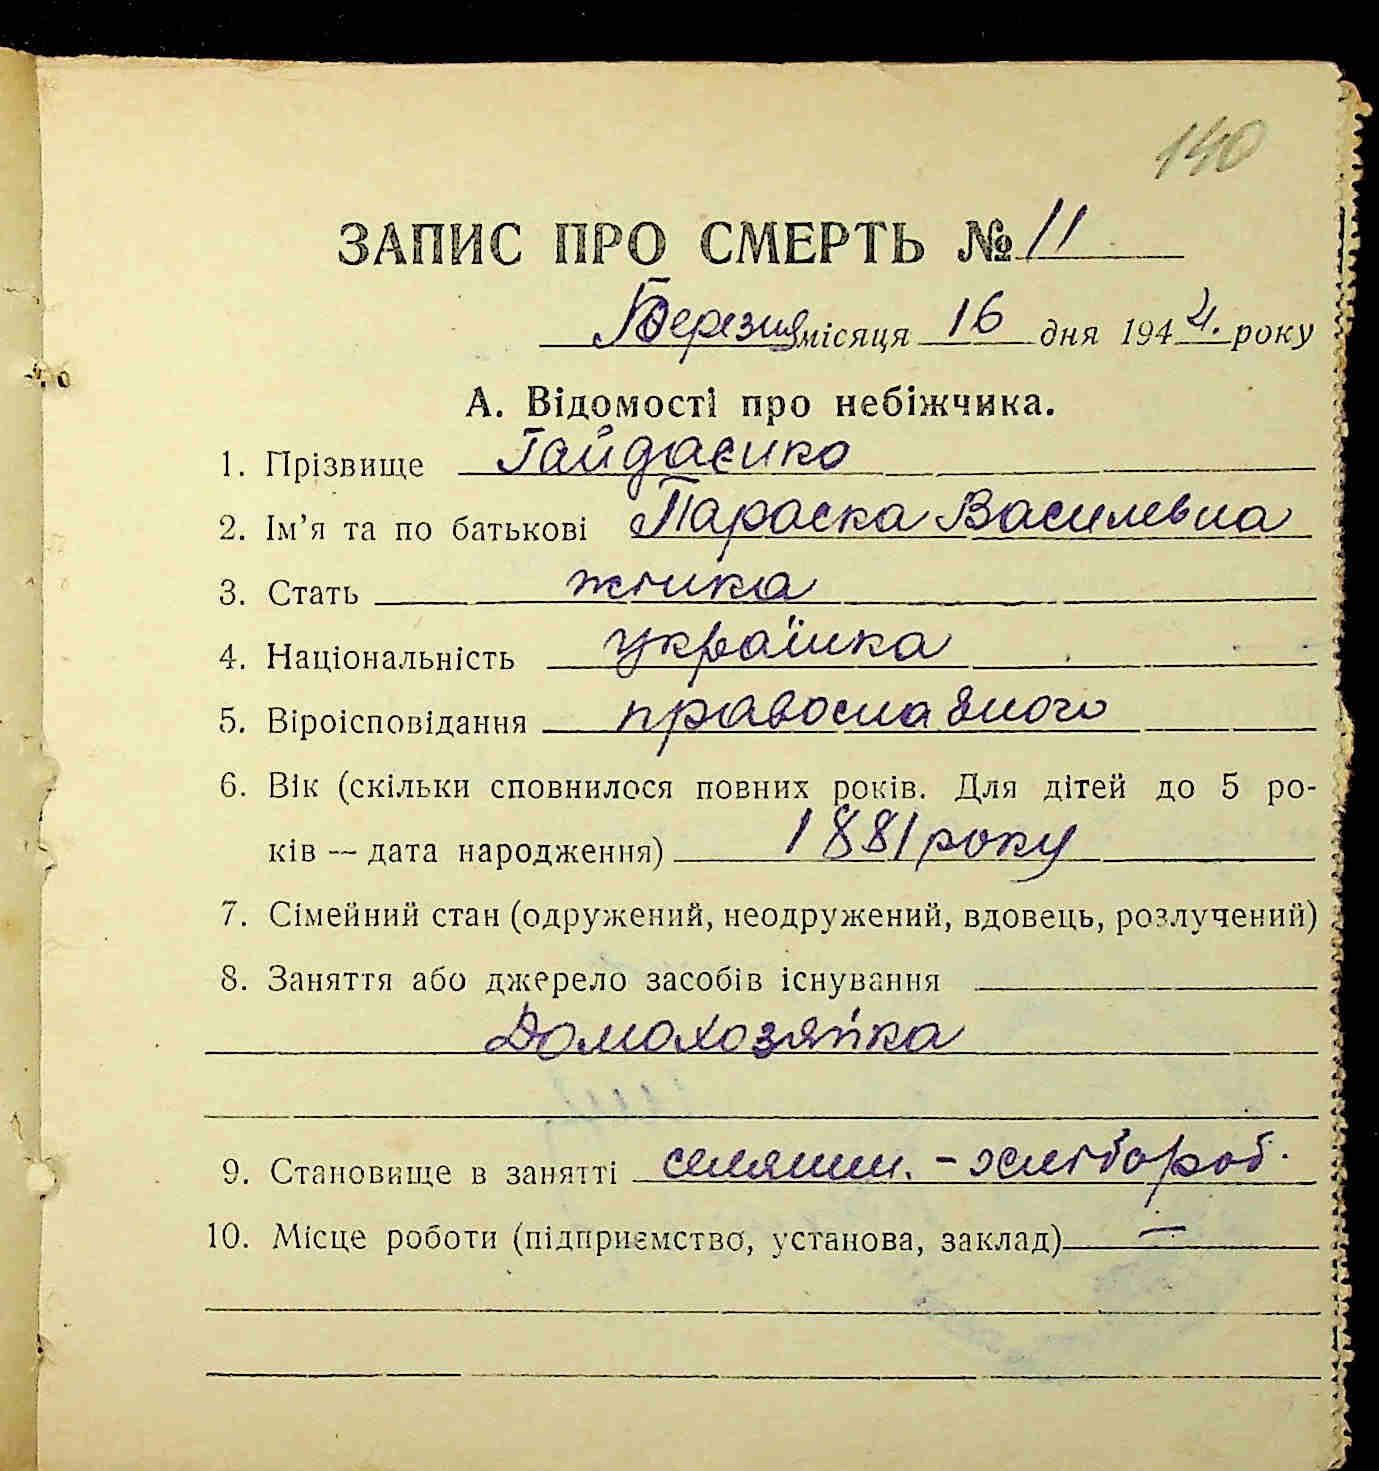 140
ЗАПИС ПРО СМЕРТЬ № 11
Березня місяця 16 дня 1944. року
А. Відомості про небіжчика.
1. Прізвище Гайдаєнко
2. Ім'я та по батькові Параска Василевна
3. Стать жінка
4. Національність українка
5. Віроісповідання православного
6. Вік (скільки сповнилося повних років. Для дітей до 5 ро-
ків — дата народження) 1881 року
7. Сімейний стан (одружений, неодружений, вдовець, розлучений)
8. Заняття або джерело засобів існування
Домохозяйка
9. Становище в занятті селянин. - хлібороб.
10. Місце роботи (підприємство, установа, заклад) —